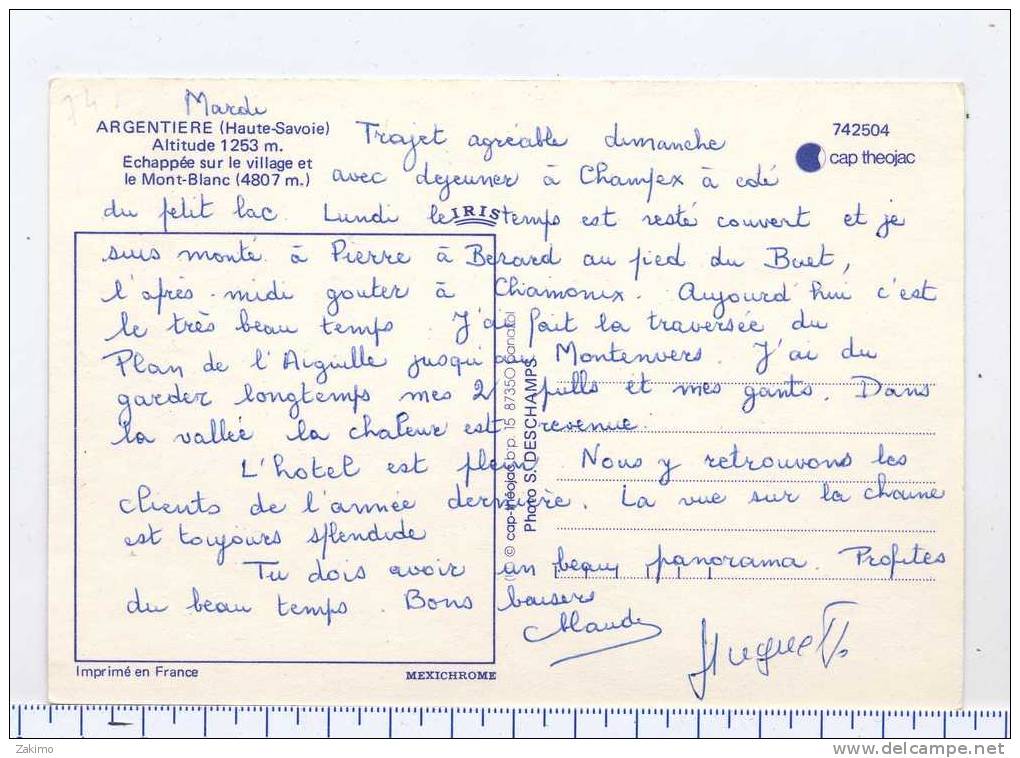 74
Mardi
ARGENTIERE (Haute-Savoie)
Altitude 1253 m.
Echappée sur le village et
le Mont-Blanc (4807 m.)
742504
cap theojac
IRIS
Trajet agréable dimanche
avec dejeuner à Champex à coté
du petit lac. Lundi le temps est resté couvert et je
suis monté à Pierre à Berard au pied du Buet,
l'après-midi gouter à Chamonix. Aujourd'hui c'est
le très beau temps. J'ai fait la traversée du
Plan de l'Aiguille jusqu'au Montenvers. J'ai du
garder longtemps mes 2 pulls et mes gants. Dans
la vallée la chaleur est revenue.
L'hotel est plein. Nous y retrouvons les
clients de l'année dernière. La vue sur la chaine
est toujours splendide
Tu dois avoir un beau panorama. Profites
du beau temps. Bons baisers
Huguette
© cap-théojac b.p. 15 87350 Panazol
Photo S. DESCHAMPS
Imprimé en France
MEXICHROME
Zakimo
www.delcampe.net